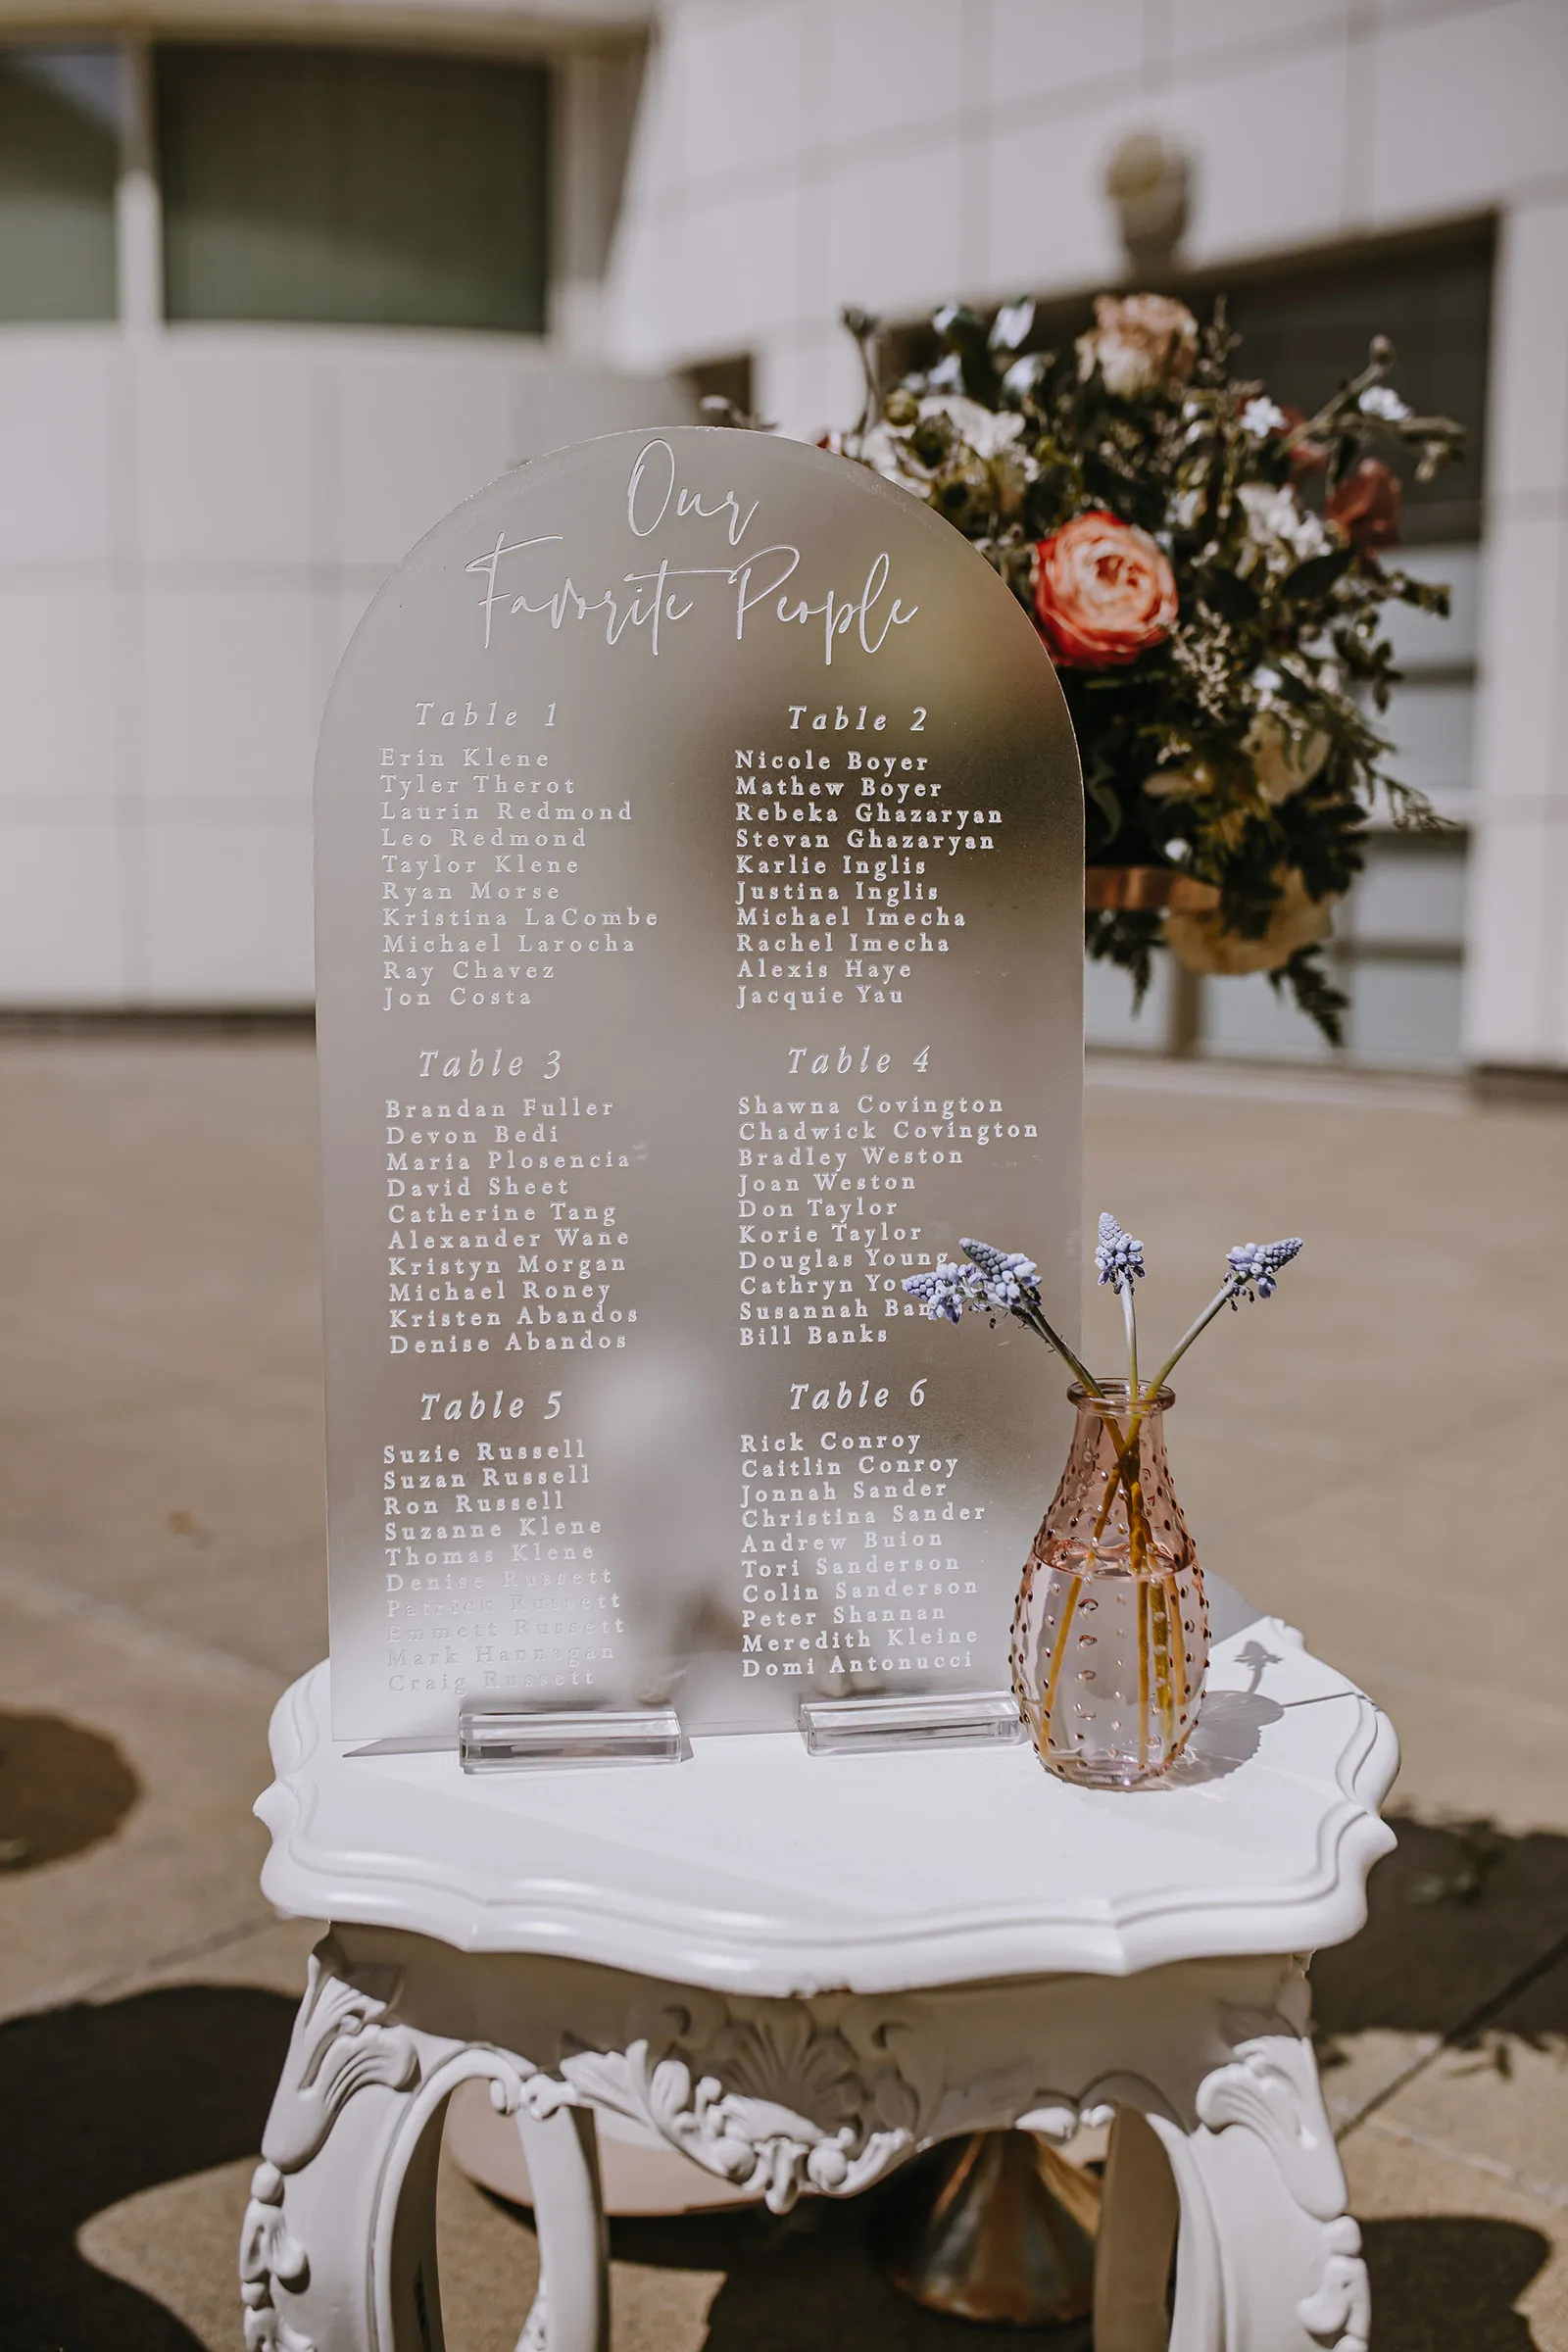 Our
Favorite People
Table 1
Erin Klene
Tyler Therot
Laurin Redmond
Leo Redmond
Taylor Klene
Ryan Morse
Kristina LaCombe
Michael Larocha
Ray Chavez
Jon Costa
Table 2
Nicole Boyer
Mathew Boyer
Rebeka Ghazaryan
Stevan Ghazaryan
Karlie Inglis
Justina Inglis
Michael Imecha
Rachel Imecha
Alexis Haye
Jacquie Yau
Table 3
Brandan Fuller
Devon Bedi
Maria Plosencia
David Sheet
Catherine Tang
Alexander Wane
Kristyn Morgan
Michael Roney
Kristen Abandos
Denise Abandos
Table 4
Shawna Covington
Chadwick Covington
Bradley Weston
Joan Weston
Don Taylor
Korie Taylor
Douglas Young
Cathryn
Susannah
Bill Banks
Table 5
Suzie Russell
Suzan Russell
Ron Russell
Suzanne Klene
Thomas Klene
Denise Russett
Patrick Russett
Emmett Russett
Mark Hannagan
Craig Russett
Table 6
Rick Conroy
Caitlin Conroy
Jonnah Sander
Christina Sander
Andrew Buion
Tori Sanderson
Colin Sanderson
Peter Shannan
Meredith Kleine
Domi Antonucci